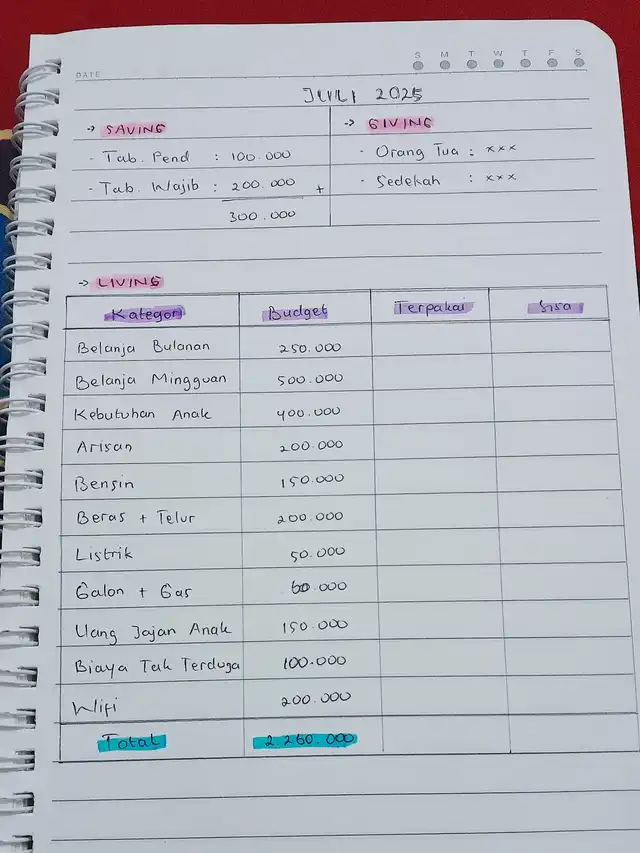 DATE
S M T W T F S
JULI 2025
→ SAVING
- Tab. Pend : 100.000
- Tab. Wajib : 200.000 +
300.000
→ GIVING
- Orang Tua : xxx
- Sedekah : xxx
→ LIVING
Kategori Budget Terpakai Sisa
Belanja Bulanan 250.000
Belanja Mingguan 500.000
Kebutuhan Anak 400.000
Arisan 200.000
Bensin 150.000
Beras + Telur 200.000
Listrik 50.000
Galon + Gas 60.000
Uang Jajan Anak 150.000
Biaya Tak Terduga 100.000
Wifi 200.000
Total 2.260.000